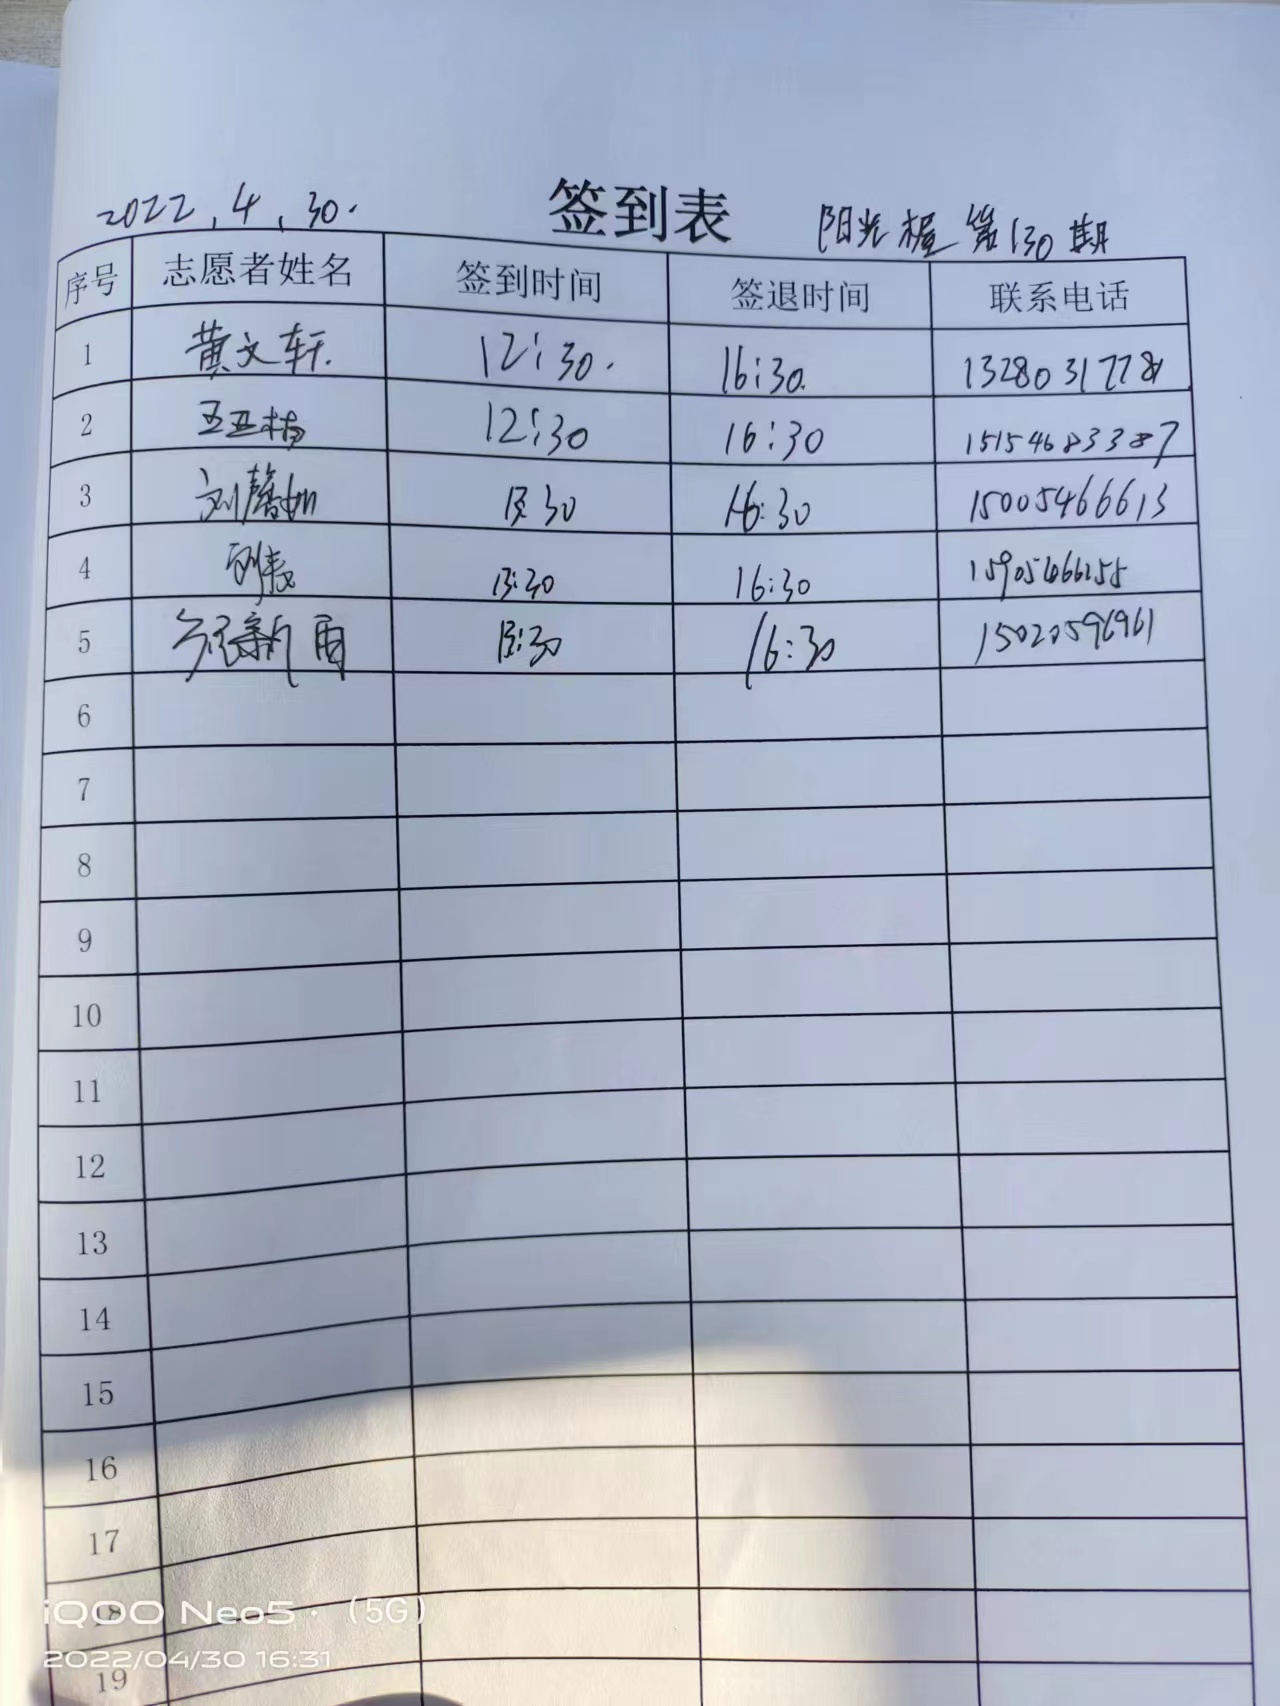 2022.4.30.
签到表
阳光 第130期
序号 志愿者姓名 签到时间 签退时间 联系电话
1 黄文轩. 12:30. 16:30.
2 12:30 16:30 15154683387
3 刘馨如 :30 16:30 15005466613
4 :30 16:30
5 新雨 :30 16:30 15020596961
6
7
8
9
10
11
12
13
14
15
16
17
18
19
iQOO Neo5 · (5G)
2022/04/30 16:31